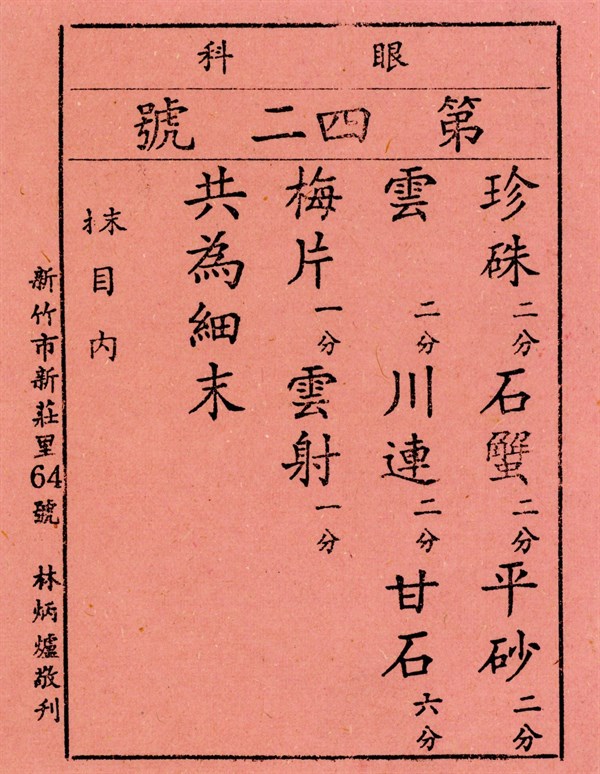 眼科
第四二號
珍硃二分石蟹二分平砂二分
雲二分川連二分甘石六分
梅片一分雲射一分
共為細末
抹目內
新竹市新莊里64號 林炳爐敬刊